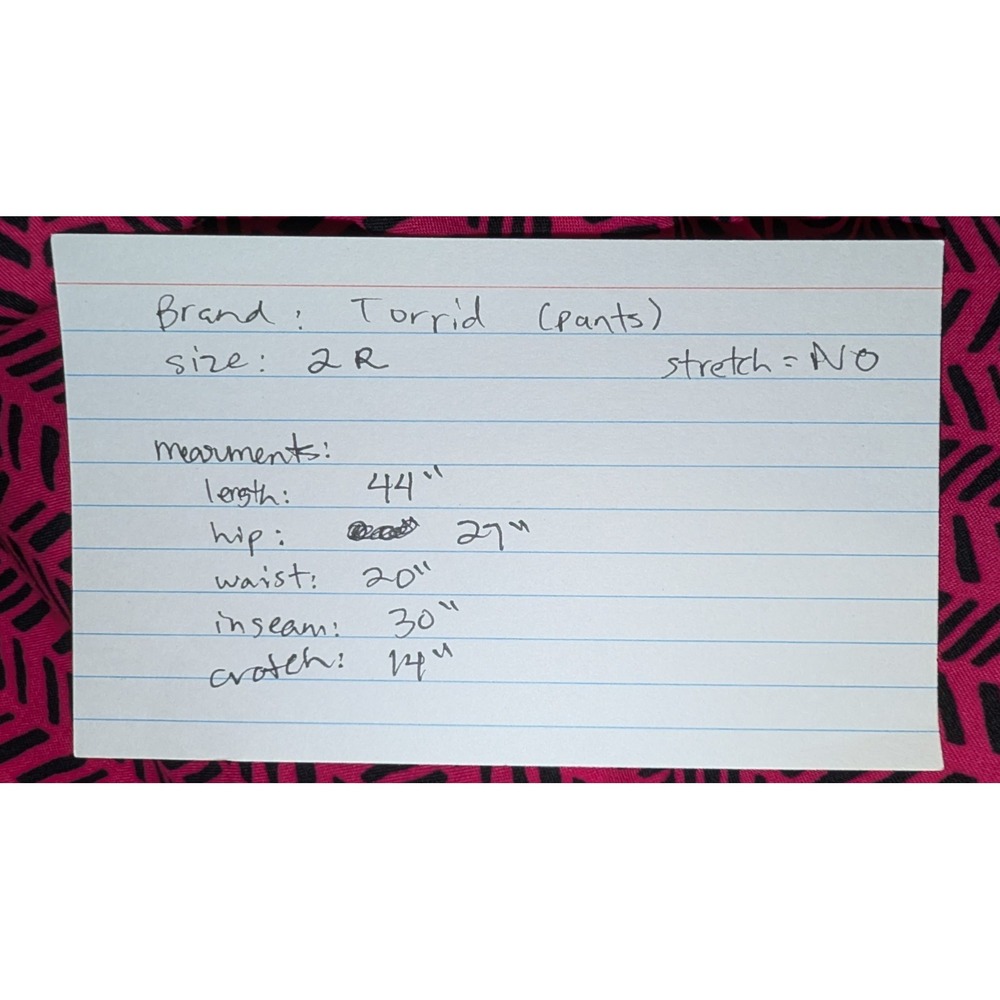 Brand: Torrid (pants)
size: 2R stretch = NO
mearments:
length: 44"
hip: 27"
waist: 20"
inseam: 30"
crotch: 14"